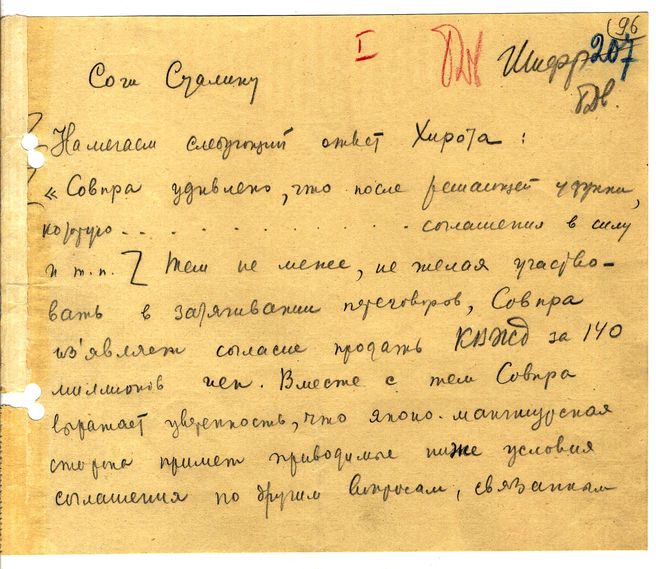 96
I
Шифр 207
Сочи Сталину
Намечаем следующий ответ Хирота:
«Совпра удивлено, что после решающей уступки,
которую . . . . . . . . . . . . . соглашения в силу
и т.п. Тем не менее, не желая участво-
вать в затягивании переговоров, Совпра
из'являет согласие продать КВЖД за 140
миллионов иен. Вместе с тем Совпра
выражает уверенность, что японо-манчжурская
сторона примет приводимые ниже условия
соглашения по другим вопросам, связанным